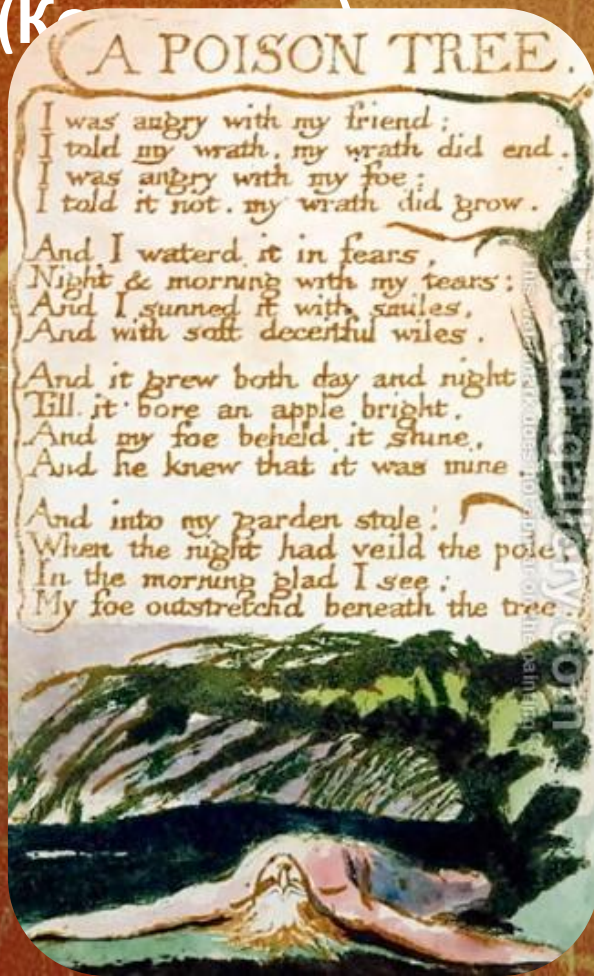 A POISON TREE.
I was angry with my friend:
I told my wrath, my wrath did end.
I was angry with my foe:
I told it not, my wrath did grow.
And I waterd it in fears,
Night & morning with my tears:
And I sunned it with smiles,
And with soft deceitful wiles.
And it grew both day and night
Till it bore an apple bright.
And my foe beheld it shine,
And he knew that it was mine
And into my garden stole:
When the night had veild the pole
In the morning glad I see:
My foe outstretchd beneath the tree
1st-art-gallery.com